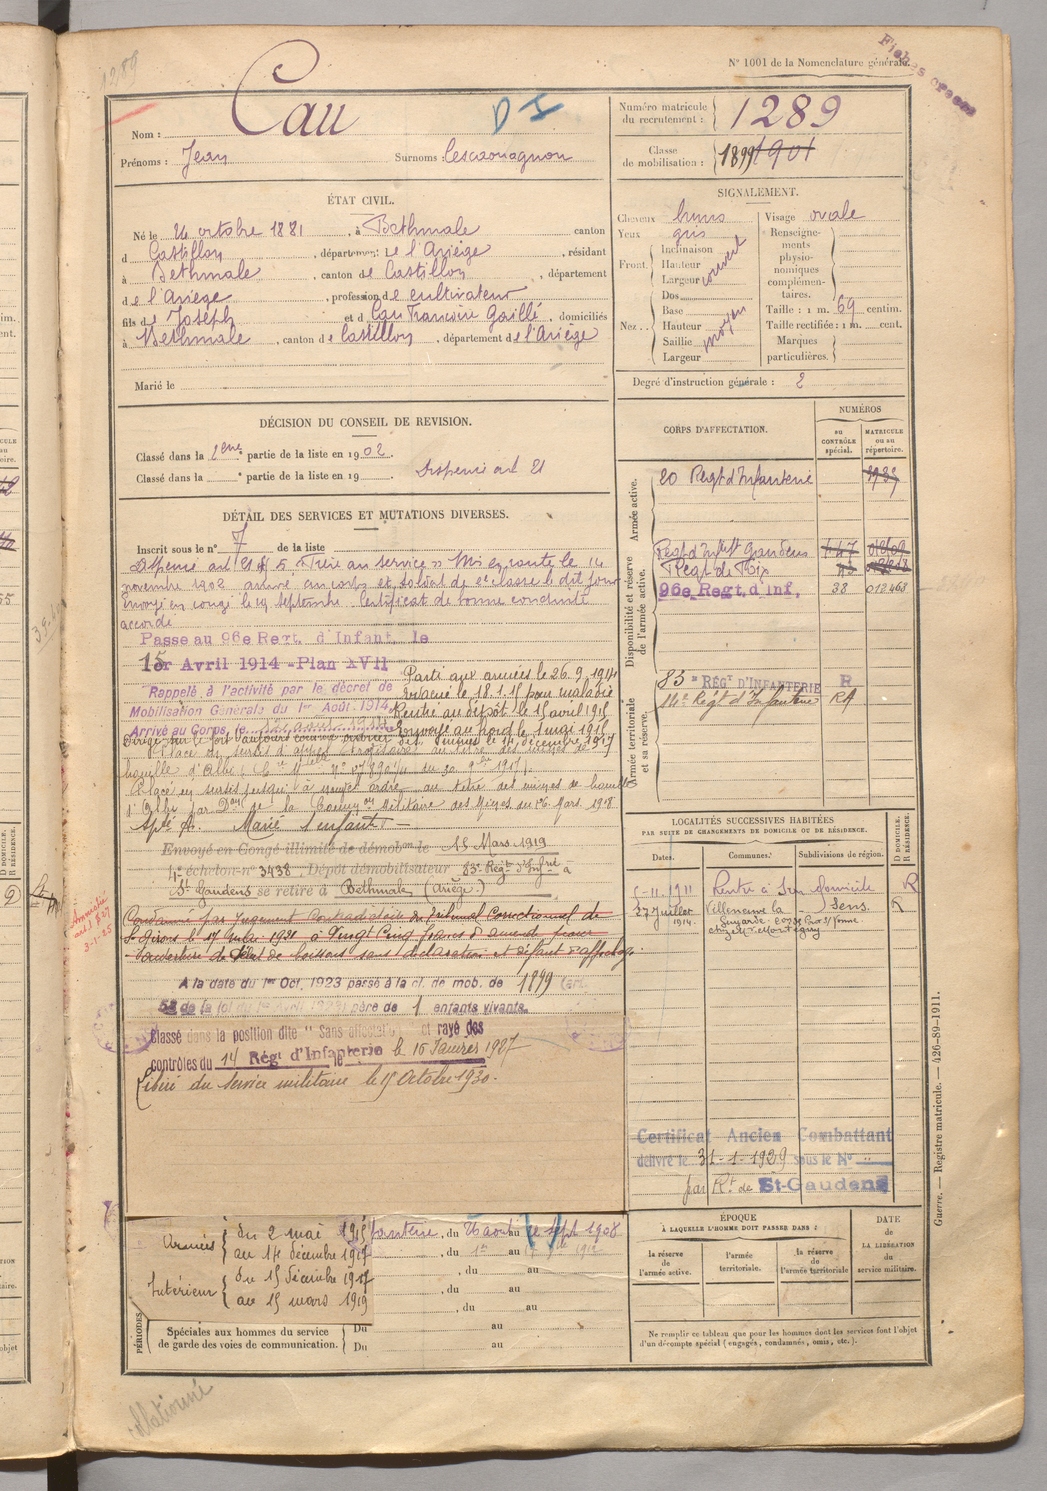 1289
N° 1001 de la Nomenclature générale.
Fiches
Nom : Cau
Prénoms : Jean
Surnoms :
Numéro matricule du recrutement : 1289
Classe de mobilisation : 1899 1901
ÉTAT CIVIL.
Né le 24 octobre 1881, à Bethmale canton
d Castillon, département de l'Ariège, résidant
à Bethmale, canton de Castillon, département
de l'Ariège, profession de cultivateur
fils de Joseph et de Cau Françoise Gaillé, domiciliés
à Bethmale, canton de Castillon, département de l'Ariège
Marié le
SIGNALEMENT.
Cheveux bruns
Yeux gris
Front.
Inclinaison
Hauteur
Largeur
couvert
Nez
Dos
Base
Hauteur
Saillie
Largeur
moyen
Visage ovale
Renseignements physionomiques complémentaires.
Taille : 1 m. 69 centim.
Taille rectifiée : 1 m. cent.
Marques particulières.
Degré d'instruction générale : 2
DÉCISION DU CONSEIL DE REVISION.
Classé dans la 1ère partie de la liste en 1902.
Classé dans la e partie de la liste en 19
Dispensé art 21
DÉTAIL DES SERVICES ET MUTATIONS DIVERSES.
Inscrit sous le n° 7 de la liste
Dispensé art 21 § 5 « Frère au service » Mis en route le 14
novembre 1902 arrivé au corps et soldat de 2e classe le dit jour
Envoyé en congé le 19 septembre. Certificat de bonne conduite
accordé
Passe au 96e Regt. d'Infant. le
15 er Avril 1914 - Plan XVII
Rappelé à l'activité par le décret de
Mobilisation Générale du 1er Août. 1914
Arrivé au Corps, le
Parti aux armées le 26.9.1914
Evacué le 18.1.15 pour maladie
Rentré au dépôt le 15 avril 1915
Envoyé au front le 1 mai 1915
14 décembre 1917
Placé en sursis d'appel
houille d'Albi
Placé en sursis jusqu'à nouvel ordre au titre des mines de houille
d'Albi par Don de la Commion Militaire des Mines du 16 Mars 1918
Apte A. Marié 1 enfant. —
Envoyé en Congé illimité de démobon le 15 Mars 1919
4e échelon n° 3438, Dépôt démobilisateur 83e Régt d'Infrie à
St Gaudens se retire à Bethmale (Ariège)
Condamné par Jugement Contradictoire du Tribunal Correctionnel de
St Girons le 17 1921 à Vingt Cinq francs d'amende pour
ouverture de débit de boissons sans déclaration et défaut d'affichage
Amnistié
3-1-25
A la date du 1er Oct. 1923 passé à la cl. de mob. de 1899 (art.
58 de la loi du 1er Avril 1923) père de 1 enfants vivants.
Classé dans la position dite "Sans affectation" et rayé des
contrôles du 14 Rég't d'Infanterie le 16 Janvier 1927
Libéré du service militaire le 15 Octobre 1930.
CORPS D'AFFECTATION.
NUMÉROS
au CONTRÔLE spécial.
MATRICULE ou au répertoire.
Armée active.
20 Régt d'Infanterie
Disponibilité et réserve de l'armée active.
Régt d'Infie St Gaudens
Régt de Foix
96e Regt. d'Inf. 38 012468
Armée territoriale et sa réserve.
83e RÉGT D'INFANTERIE R
14e Régt d'Infanterie RA
LOCALITÉS SUCCESSIVES HABITÉES
PAR SUITE DE CHANGEMENTS DE DOMICILE OU DE RÉSIDENCE.
Dates.
Communes.
Subdivisions de région.
D DOMICILE. R RÉSIDENCE.
5-11-1911 Rentré à son domicile R
27 Juillet 1914. Villeneuve la Sens. R
Certificat Ancien Combattant
délivré le 31-1-1929 sous le N°
par Rt de St-Gaudens
ÉPOQUE
À LAQUELLE L'HOMME DOIT PASSER DANS :
la réserve de l'armée active.
l'armée territoriale.
la réserve de l'armée territoriale
DATE de LA LIBÉRATION du service militaire.
Ne remplir ce tableau que pour les hommes dont les services font l'objet
d'un décompte spécial (engagés, condamnés, omis, etc.).
Armées
du 2 mai 1915
au 14 décembre 1917
Intérieur
du 15 Décembre 1917
au 15 mars 1919
fanterie, du 26 août au sept 1908
, du 1er au
, du au
, du au
, du au
PÉRIODES
Spéciales aux hommes du service
de garde des voies de communication.
Du au
Du au
Guerre. — Registre matricule. — 426-89-1911.